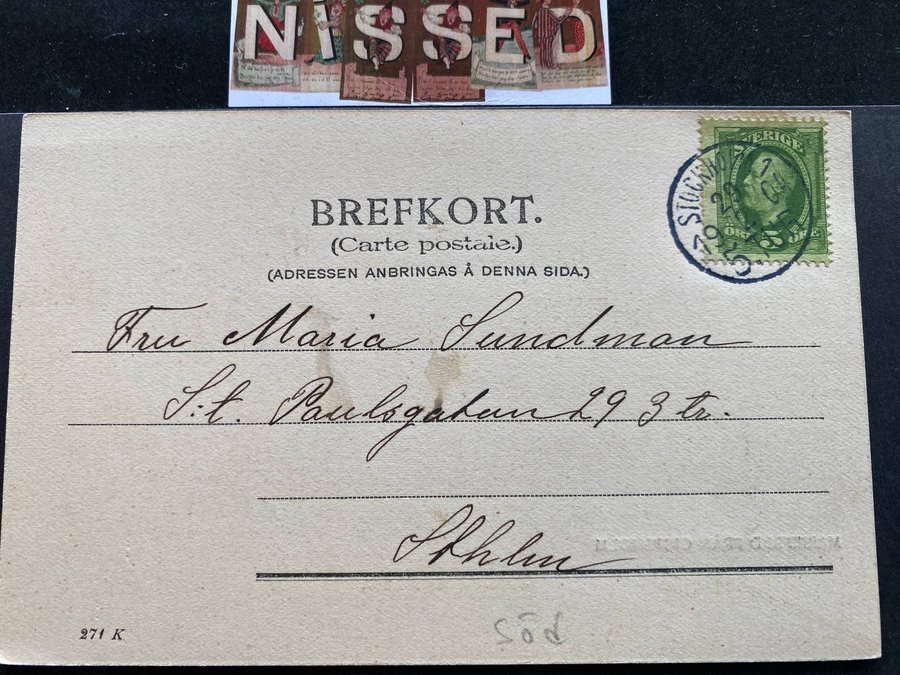 NISSED
BREFKORT.
(Carte postale.)
(ADRESSEN ANBRINGAS Å DENNA SIDA.)
SVERIGE
5 ÖRE
STOCKHOLM
Fru Maria Sundman
S:t. Paulsgatan 29 3 tr.
Sthlm
271 K
Söd